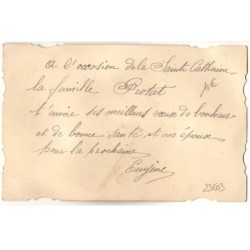 a l'occasion de la Sainte Catherine
la famille Protat
t'envoie ses meilleurs vœux de bonheur
et de bonne santé et un époux
pour la prochaine
Eugène